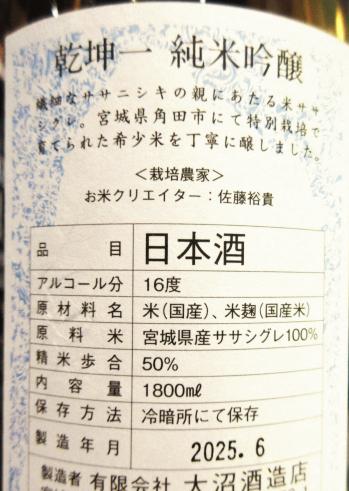 乾坤一 純米吟醸
繊細なササニシキの親にあたる米ササ
シグレ。宮城県角田市にて特別栽培で
育てられた希少米を丁寧に醸しました。
＜栽培農家＞
お米クリエイター：佐藤裕貴
品目 日本酒
アルコール分 16度
原材料名 米(国産)、米麹(国産米)
原料米 宮城県産ササシグレ100%
精米歩合 50%
内容量 1800㎖
保存方法 冷暗所にて保存
製造年月 2025.6
製造者 有限会社 大沼酒造店